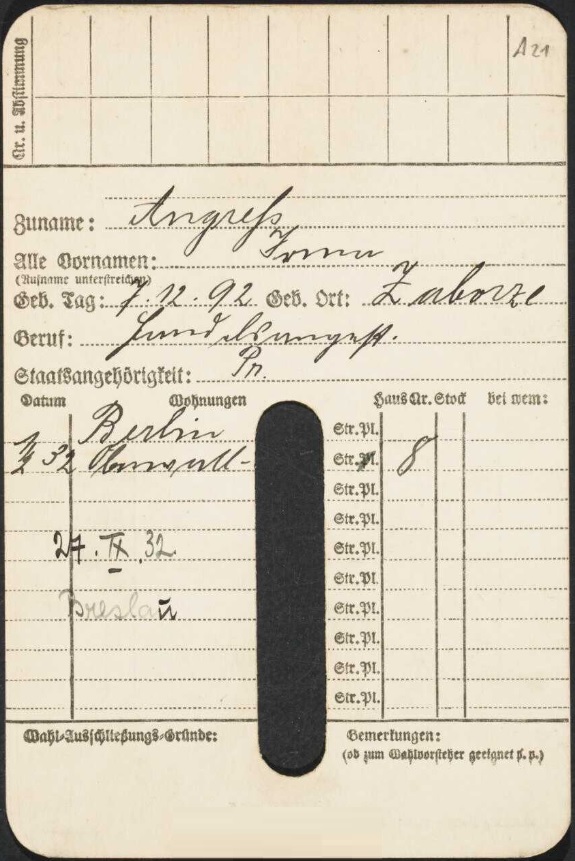 Nr. u. Abstimmung
A 21
Zuname: Angreß
Alle Vornamen: Irma
(Rufname unterstreichen)
Geb. Tag: 7.12.92 Geb. Ort: Zaborze
Beruf: Handelsangest.
Staatsangehörigkeit: Pr.
Datum Wohnungen Haus Nr. Stock bei wem:
Berlin Str.Pl.
32 Oberwall- Str.Pl. 8
Str.Pl.
Str.Pl.
27. IX .32 Str.Pl.
Str.Pl.
Breslau Str.Pl.
Str.Pl.
Str.Pl.
Str.Pl.
Wahl-Ausschließungs-Gründe: Bemerkungen:
(ob zum Wahlvorsteher geeignet s. v.)